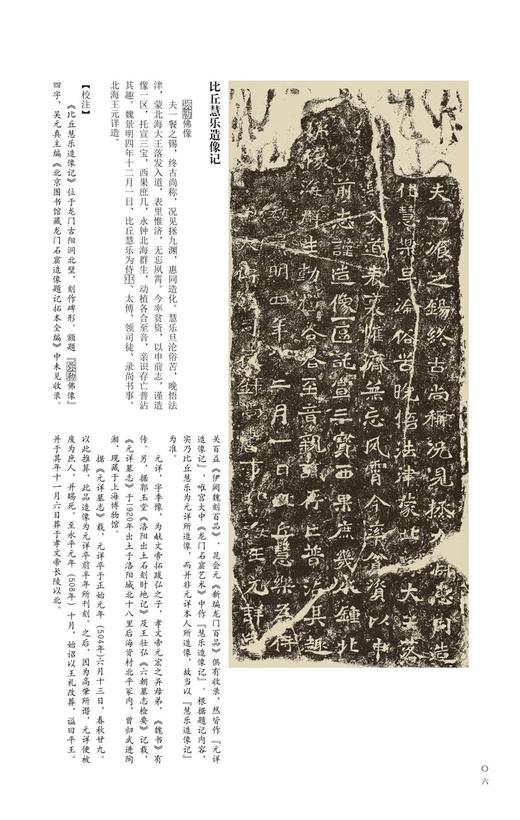 比丘慧乐造像记
弥勒佛像
夫一餐之锡，终古尚称，况见拯九渊，惠同造化。慧乐旦沦俗苦，晚悟法
津，蒙北海大王落发入道，表里惟济，无忘夙霄。今率贫资，以申前志，谨造
像一区，托宣三宝，西果庶几，永钟北海群生，动植各合至音，亲识存亡普沾
其趣。魏景明四年十二月一日，比丘慧乐为侍中、太傅、领司徒、录尚书事、
北海王元详造。
【校注】
《比丘慧乐造像记》位于龙门古阳洞北壁，刻作碑形。额题『弥勒佛像』
四字，吴元真主编《北京图书馆藏龙门石窟造像题记拓本全编》中未见收录。
关百益《伊阙魏刻百品》、昆会元《新编龙门百品》俱有收录，然皆作『元详
造像记』，唯宫大中《龙门石窟艺术》中作『慧乐造像记』。根据题记内容，
实乃比丘慧乐为元详所造像，而并非元详本人所造像，故当以『慧乐造像记』
为准。
元详，字季豫，为献文帝拓跋弘之子，孝文帝元宏之异母弟，《魏书》有
传。另，据郭玉堂《洛阳出土石刻时地记》及王壮弘《六朝墓志检要》记载，
《元详墓志》于1920年出土于洛阳城北十八里后海资村北平冢内，曾归武进陶
湘，现藏于上海博物馆。
据《元详墓志》载，元详卒于正始元年（504年）六月十三日，春秋廿九。
以此推算，此品造像为元详卒前半年所刊刻。之后，因为高肇所谮，元详便被
废为庶人，并赐死。至永平元年（508年）十月，始诏以王礼改葬，谥曰平王。
并于其年十一月六日葬于孝文帝长陵以北。
夫一飡之錫終古尚稱況見拯九淵惠同造
化慧樂旦淪俗苦晚悟法津蒙北海大王落
髮入道表裏惟濟無忘夙霄今率貧資以申
前志謹造像一區託宣三寶西果庶幾永鍾北
海群生動植各合至音親識存亡普沾其趣
魏景明四年十二月一日比丘慧樂為侍
〇六